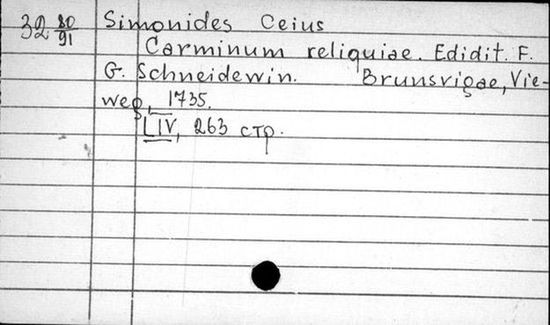 32 80/91 Simonides Ceius
Carminum reliquiae. Edidit. F.
G. Schneidewin. Brunsvigae, Vie-
weg, 1735.
LIV, 263 стр.